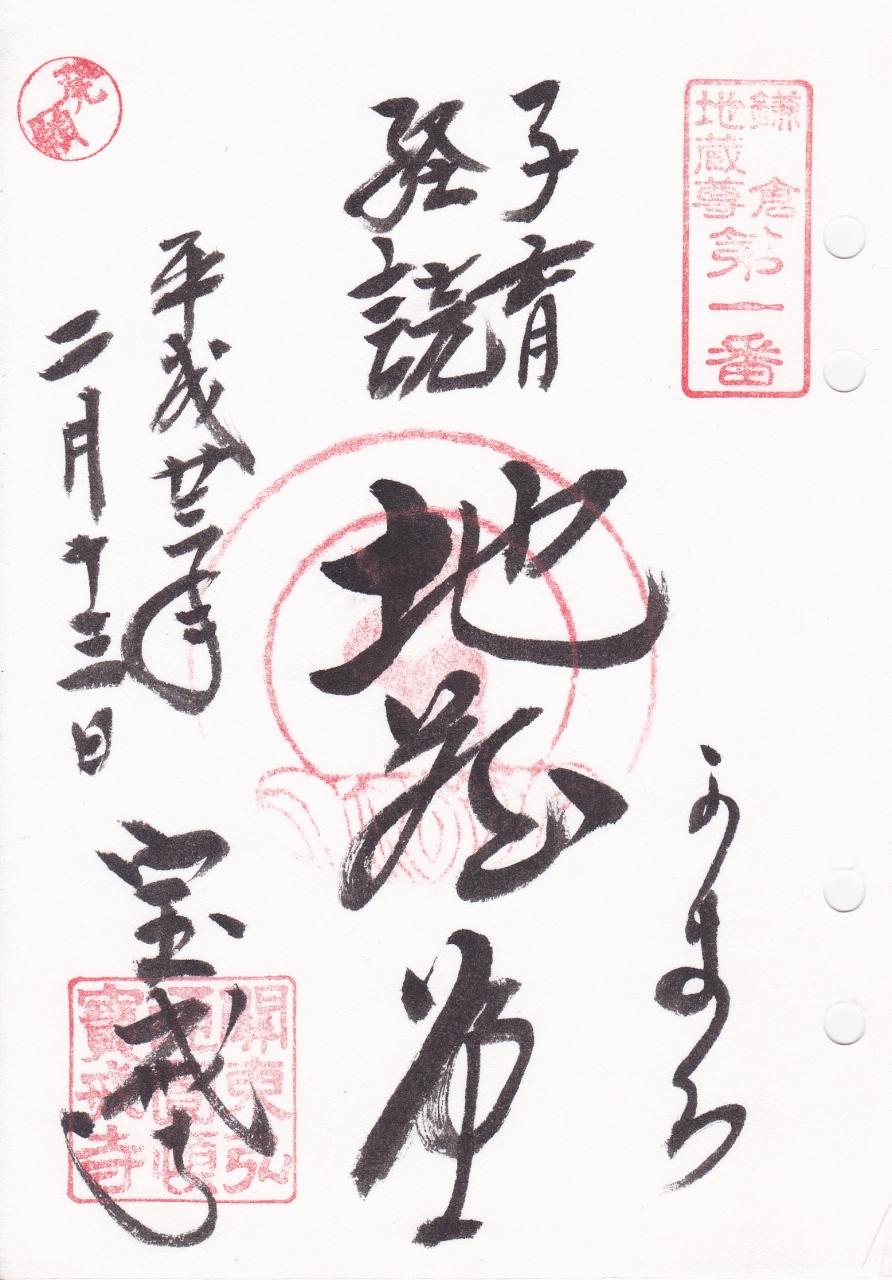 鎌倉
地蔵尊
第一番
かまくら
子育
経読
地蔵尊
平成廿二年
二月十三日
宝戒寺
關東弘
寶戒寺